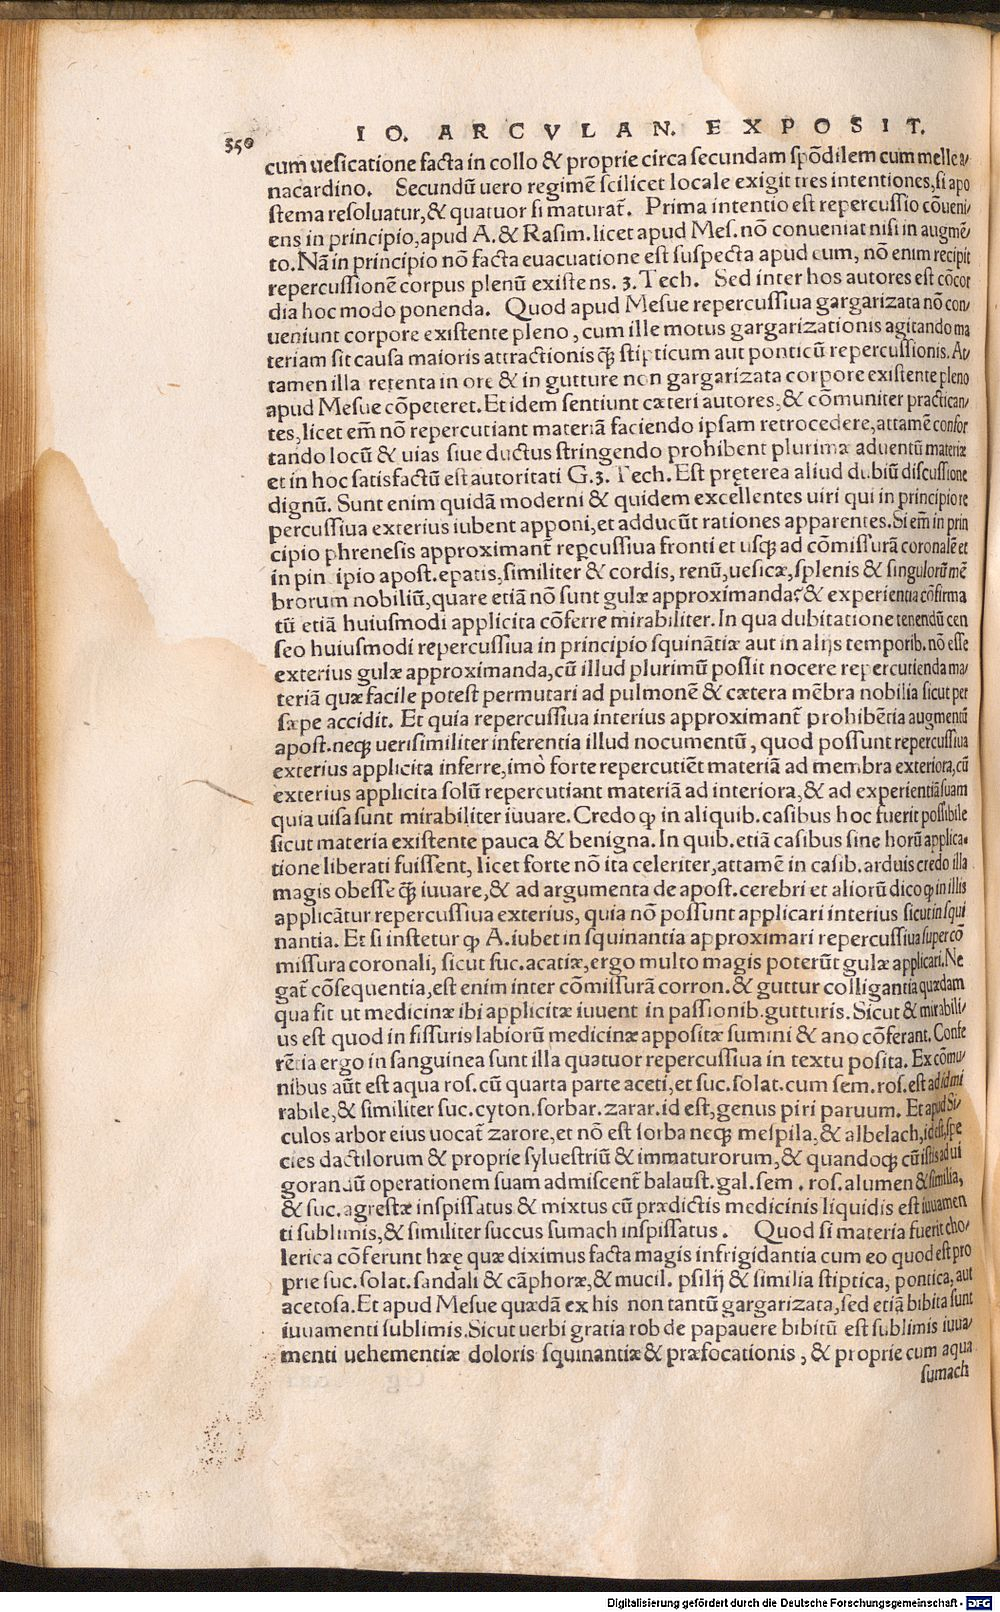 350
IO. ARCVLAN. EXPOSIT.
cum uesicatione facta in collo & proprie circa secundam spōdilem cum melle a/
nacardino. Secundū uero regimē scilicet locale exigit tres intentiones, si apo
stema resoluatur, & quatuor si maturat̄. Prima intentio est repercussio cōueni/
ens in principio, apud A. & Rasim. licet apud Mes. nō conueniat nisi in augmē/
to. Nā in principio nō facta euacuatione est suspecta apud eum, nō enim recipit
repercussionē corpus plenū existens. 3. Tech. Sed inter hos autores est cōcor
dia hoc modo ponenda. Quod apud Mesue repercussiua gargarizata nō con/
ueniunt corpore existente pleno, cum ille motus gargarizationis agitando ma
teriam sit causa maioris attractionis q̄ȝ stipticum aut ponticū repercussionis. At/
tamen illa retenta in ore & in gutture non gargarizata corpore existente pleno
apud Mesue cōpeteret. Et idem sentiunt cæteri autores, & cōmuniter practican/
tes, licet em̄ nō repercutiant materiā faciendo ipsam retrocedere, attamē confor
tando locū & uias siue ductus stringendo prohibent plurimæ aduentū materiæ
et in hoc satisfactū est autoritati G. 3. Tech. Est pręterea aliud dubiū discussione
dignū. Sunt enim quidā moderni & quidem excellentes uiri qui in principio re
percussiua exterius iubent apponi, et adducūt rationes apparentes. Si em̄ in prin
cipio phrenesis approximant̄ repercussiua fronti et usq̃ȝ ad cōmissurā coronalē et
in pin ipio apost. epatis, similiter & cordis, renū, uesicæ, splenis & singulorū mē
brorum nobiliū, quare etiā nō sunt gulæ approximanda? & experientia cōfirma
tū etiā huiusmodi applicita cōferre mirabiliter. In qua dubitatione tenendū cen
seo huiusmodi repercussiua in principio squinātiæ aut in alijs temporib. nō esse
exterius gulæ approximanda, cū illud plurimū possit nocere repercutienda ma/
teriā quæ facile potest permutari ad pulmonē & cætera mēbra nobilia sicut per
sæpe accidit. Et quia repercussiua interius approximant̄ prohibētia augmentū
apost. neq̃ȝ uerisimiliter inferentia illud nocumentū, quod possunt repercussiua
exterius applicita inferre, imò forte repercutiēt materiā ad membra exteriora, cū
exterius applicita solū repercutiant materiā ad interiora, & ad experientiā suam
quia uisa sunt mirabiliter iuuare. Credo ꝙ in aliquib. casibus hoc fuerit possibile
sicut materia existente pauca & benigna. In quib. etiā casibus sine horū applica-
tione liberati fuissent, licet forte nō ita celeriter, attamē in casib. arduis credo illa
magis obesse q̄ȝ iuuare, & ad argumenta de apost. cerebri et aliorū dico ꝙ in illis
applicātur repercussiua exterius, quia nō possunt applicari interius sicut in squi
nantia. Et si instetur ꝙ A. iubet in squinantia approximari repercussiua super cō
missura coronali, sicut suc. acatiæ, ergo multo magis poterūt gulæ applicari. Ne
gat̄ cōsequentia, est enim inter cōmissurā corron. & guttur colligantia quædam
qua fit ut medicinæ ibi applicitæ iuuent in passionib. gutturis. Sicut & mirabili/
us est quod in fissuris labiorū medicinæ appositæ sumini & ano cōferant. Confe
rētia ergo in sanguinea sunt illa quatuor repercussiua in textu posita. Ex cōmu/
nibus aūt est aqua ros. cū quarta parte aceti, et suc. solat. cum sem. ros. est ad id mi
rabile, & similiter suc. cyton. sorbar. zarar. id est, genus piri paruum. Et apud Si/
culos arbor eius uocat̄ zarore, et nō est sorba neq̃ȝ mespila, & albelach, id est, spe
cies dactilorum & proprie syluestriū & immaturorum, & quandoq̃ȝ cū istis ad ui
gorandū operationem suam admiscent̄ balaust. gal. sem. ros. alumen & similia,
& suc. agrestæ inspissatus & mixtus cū prædictis medicinis liquidis est iuuamen
ti sublimis, & similiter succus sumach inspissatus. Quod si materia fuerit cho/
lerica cōferunt hæę quæ diximus facta magis infrigidantia cum eo quod est pro
prie suc. solat. sandali & cāphoræ, & mucil. psilij & similia stiptica, pontica, aut
acetosa. Et apud Mesue quædā ex his non tantū gargarizata, sed etiā bibita sunt
iuuamenti sublimis. Sicut uerbi gratia rob de papauere bibitū est sublimis iuua/
menti uehementiæ doloris squinantiæ & præfocationis, & proprie cum aqua
sumach
Digitalisierung gefördert durch die Deutsche Forschungsgemeinschaft - DFG